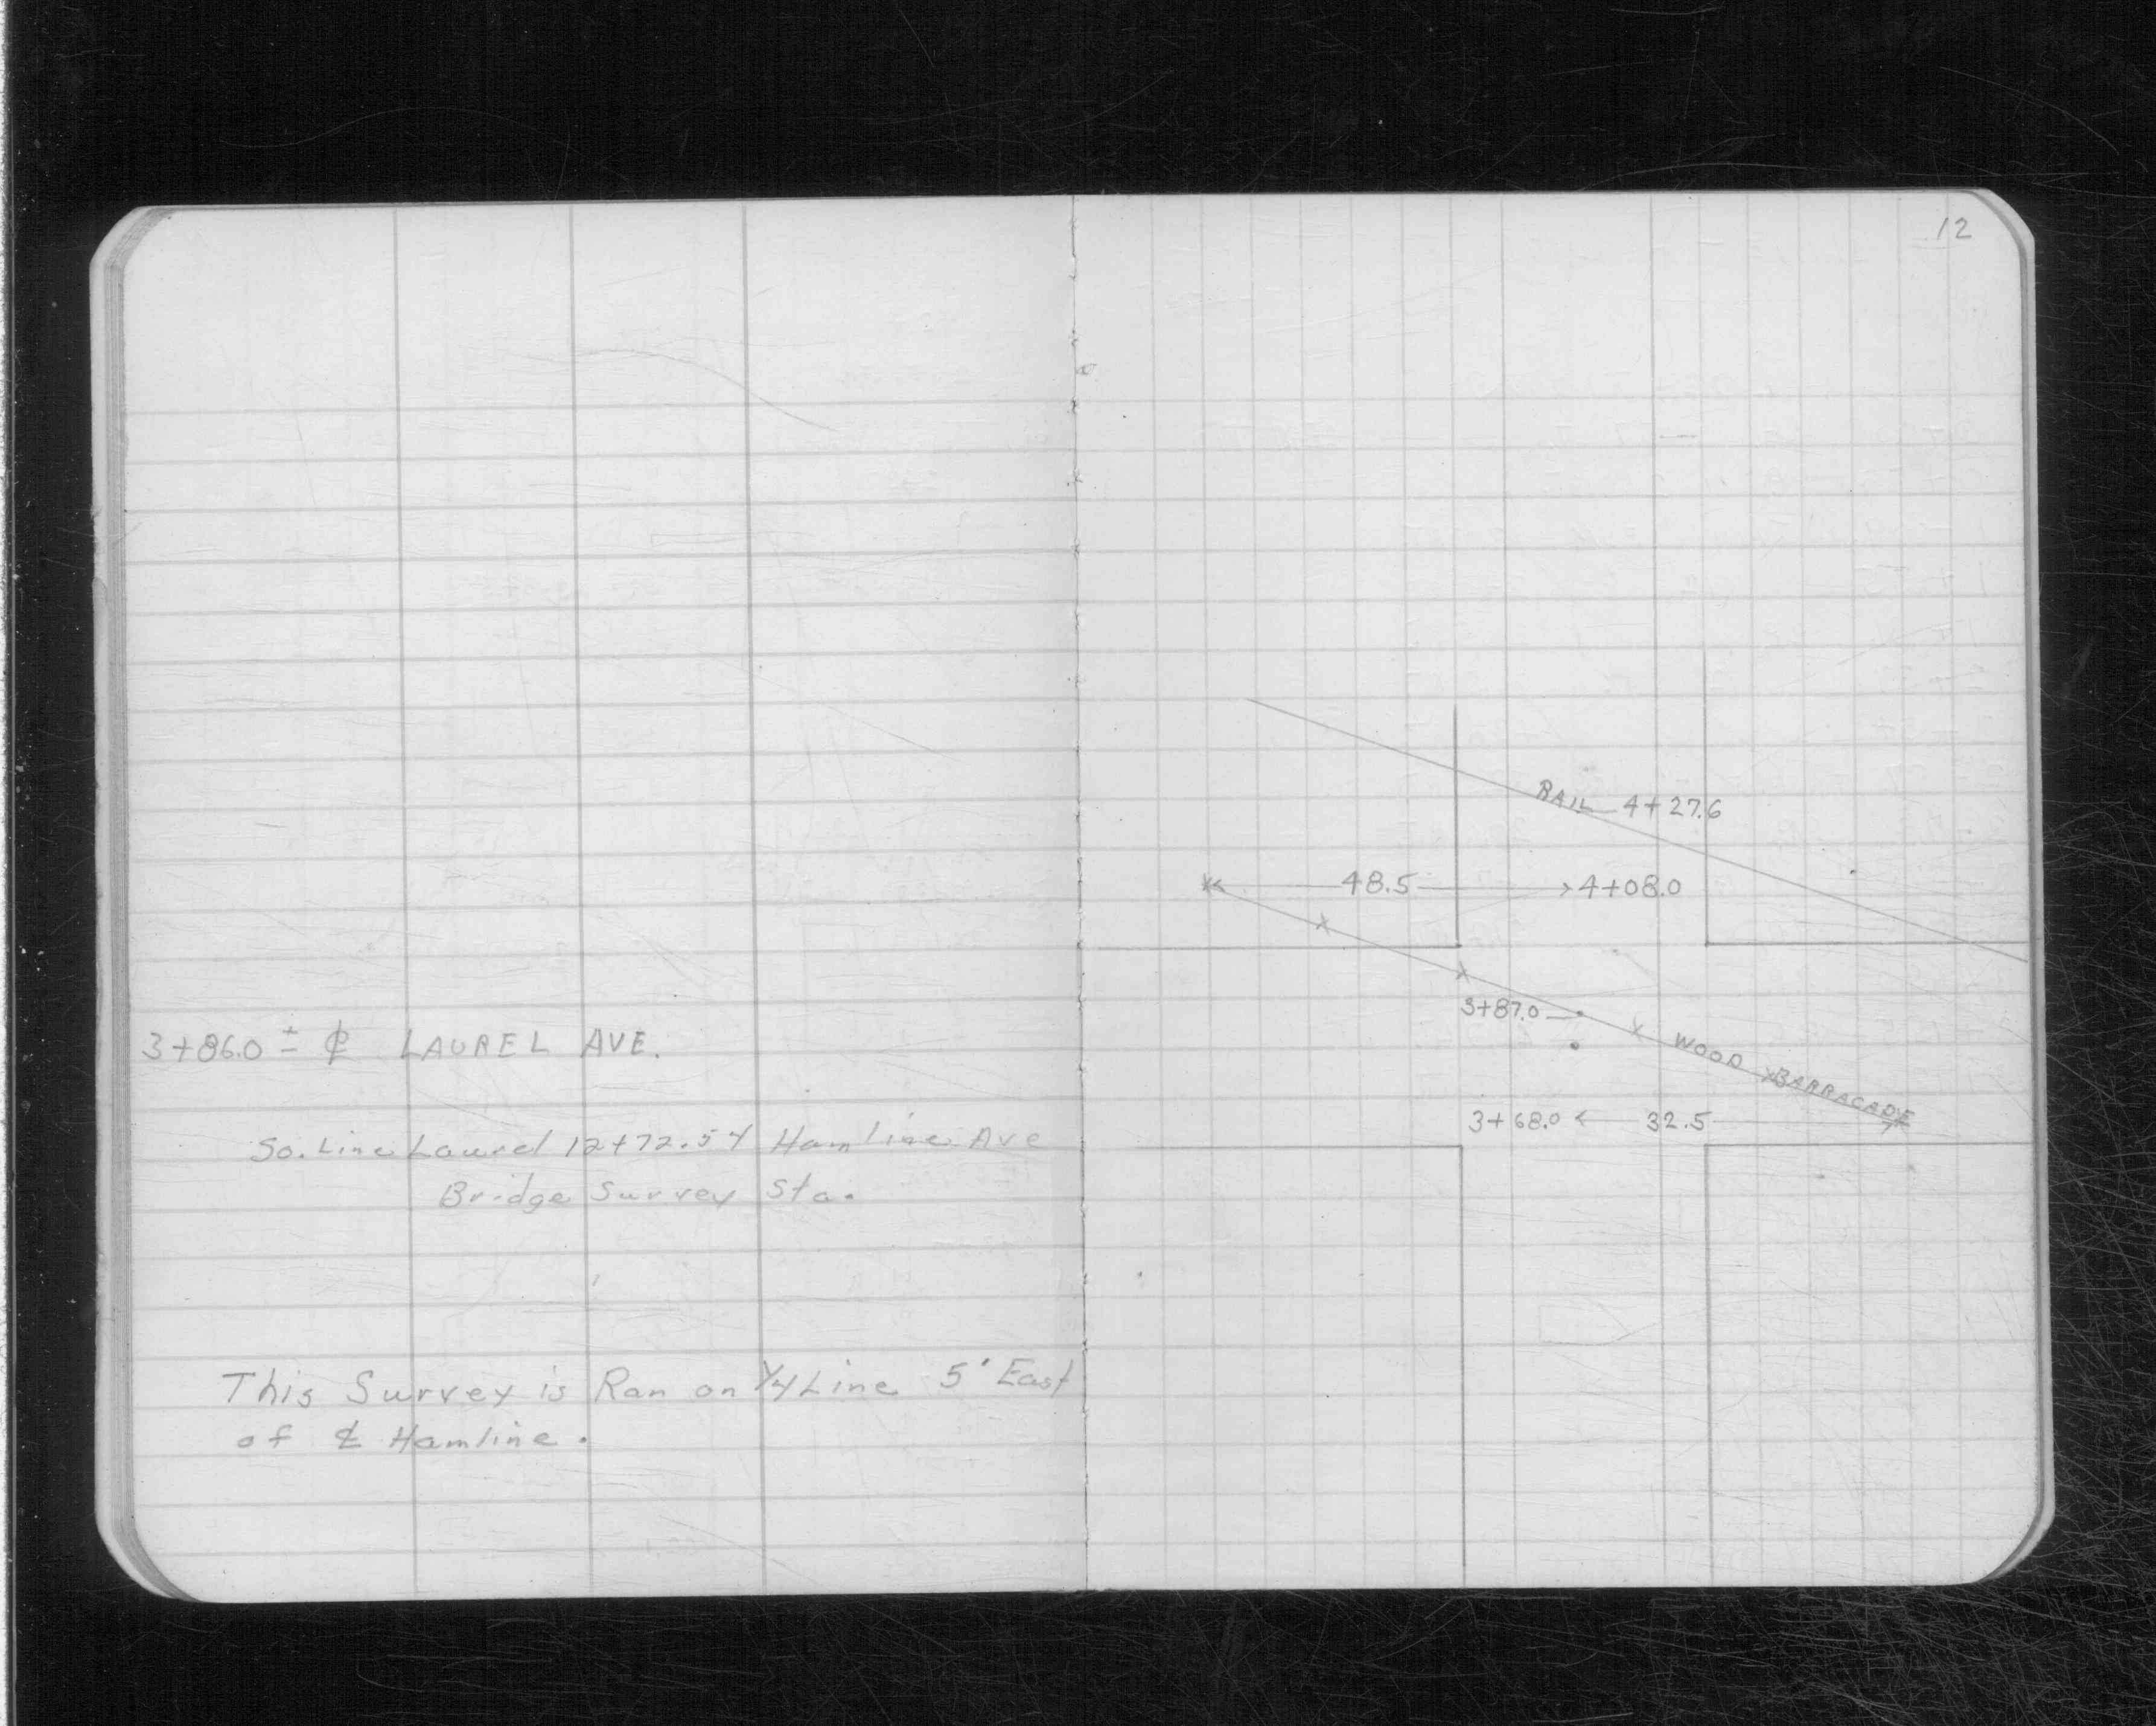 3+86.0 ± ℄ LAUREL AVE.
So. Line Laurel 12+72.54 Hamline Ave
Bridge Survey Sta.
This Survey is Ran on 1/4 Line 5' East
of ℄ Hamline.
12
RAIL 4+27.6
48.5 4+08.0
3+87.0
WOOD BARRACADE
3+68.0 32.5